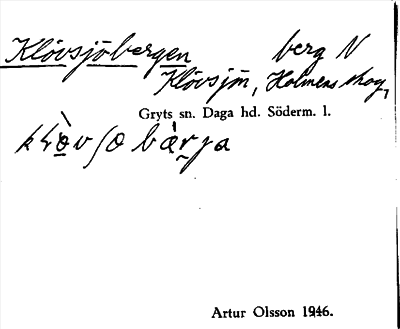 Klövsjöbergen berg N
Klövsjön, Holmens skog,
Gryts sn. Daga hd. Söderm. l.
Artur Olsson 1946.